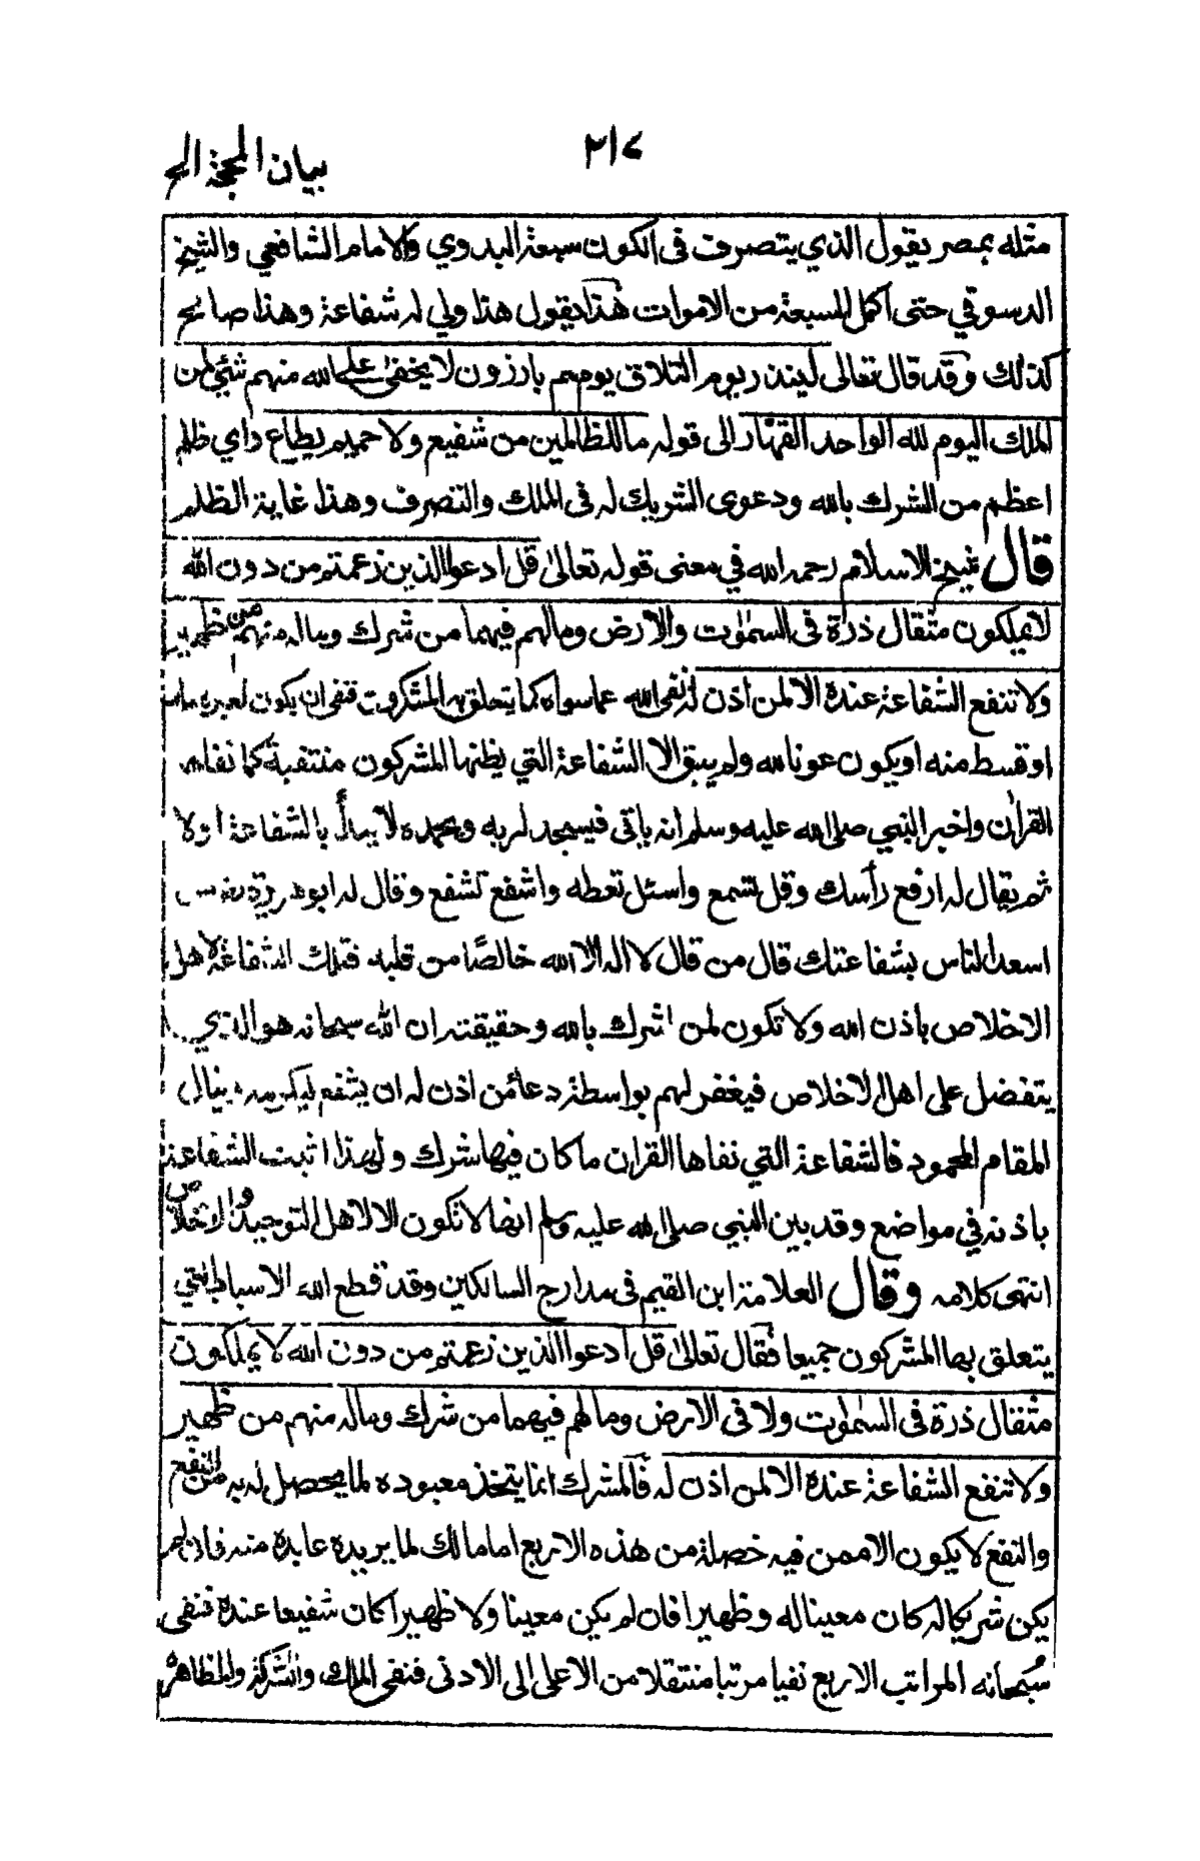 ٢١٧
بيان المحجة الخ
مثله بمصر يقول الذي يتصرف فى الكون سبعة البدوي والامام الشافعي والشيخ
الدسوقي حتى اكمل السبعة من الاموات هذا يقول هذا ولي له شفاعة وهذا صالح
كذلك وقد قال تعالى لينذر يوم التلاق يوم هم بارزون لا يخفى على الله منهم شئي لمن
الملك اليوم لله الواحد القهار الى قوله ما للظالمين من شفيع ولا حميم يطاع واي ظلم
اعظم من الشرك بالله ودعوى الشريك له فى الملك والتصرف وهذا غاية الظلم
قال شيخ الاسلام رحمه الله في معنى قوله تعالى قل ادعوا الذين زعمتم من دون الله
لا يملكون مثقال ذرة فى السموت والارض ومالهم فيهما من شرك وماله منهم من ظهير
ولا تنفع الشفاعة عنده الا لمن اذن له نفى الله عما سواه كما يتعلق به المشركون فنفى ان يكون لغيره ملك
او قسط منه او يكون عونا لله ولم يبق الا الشفاعة التي يظنها المشركون منتفية كما نفاها
القران واخبر النبي صلى الله عليه وسلم انه ياتى فيسجد لربه ويحمده لا يبدأ بالشفاعة اولا
ثم يقال له ارفع رأسك وقل تسمع واسئل تعطه واشفع تشفع وقال له ابو هريرة من
اسعد الناس بشفاعتك قال من قال لا اله الا الله خالصًا من قلبه فتلك الشفاعة لاهل
الاخلاص باذن الله ولا تكون لمن اشرك بالله وحقيقته ان الله سبحانه هو الذي
يتفضل على اهل الاخلاص فيغفر لهم بواسطة دعاء من اذن له ان يشفع ليكرمه وينال
المقام المحمود فالشفاعة التي نفاها القران ما كان فيها شرك ولهذا اثبت الشفاعة
باذنه في مواضع وقد بين النبي صلى الله عليه وسلم انها لا تكون الا لاهل التوحيد والاخلاص
انتهى كلامه وقال العلامة ابن القيم فى مدارج السالكين وقد قطع الله الاسباب التي
يتعلق بها المشركون جميعا فقال تعالى قل ادعوا الذين زعمتم من دون الله لا يملكون
مثقال ذرة فى السموت ولا فى الارض وما لهم فيهما من شرك وماله منهم من ظهير
ولا تنفع الشفاعة عنده الا لمن اذن له فالمشرك انما يتخذ معبوده لما يحصل له به من النفع
والنفع لا يكون الا ممن فيه خصلة من هذه الاربع اما مالك لما يريده عابده منه فان لم
يكن شريكا له كان معينا له وظهيرا فان لم يكن معينا ولا ظهيرا كان شفيعا عنده فنفى
سبحانه المراتب الاربع نفيا مرتبا منتقلا من الاعلى الى الادنى فنفى الملك والشركة والمظاهرة